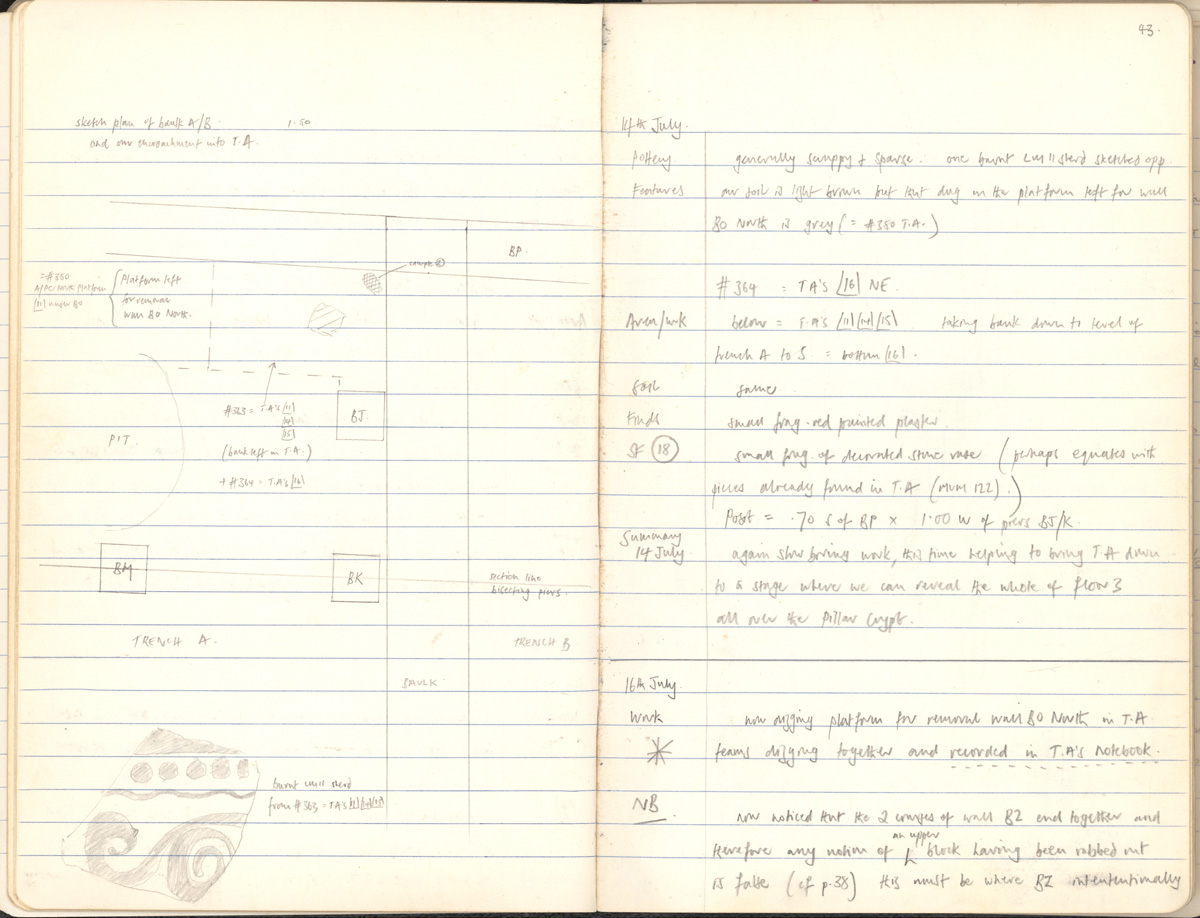 sketch plan of baulk A/B 1.50
and our encroachment into T.A.
BP.
= #380
[11] under BO
Platform left
for removal
wall BO North.
PIT.
#363 = T.A's [11]
[14]
[15]
(baulk left in T.A.)
+ #364 = T.A's [16]
BJ.
BM
BK
section line
bisecting piers.
TRENCH A.
TRENCH B
BAULK
burnt LMII sherd
from #363 = TA's [11][14][15]
43.
14th July.
Pottery generally scrappy & sparse. one burnt LMII sherd sketched opp.
Features our soil is light brown but that dug in the platform left for wall
BO North is grey (= #380 T.A.)
#364 = TA's [16] NE.
Area/wk below = T.A's [11][14][15] taking baulk down to level of
trench A to S = bottom [16].
Soil same
Finds small frag. red painted plaster.
SF (18) small frag. of decorated stone vase (perhaps equates with
pieces already found in T.A (MUM 122).)
Posit = .70 S of BP x 1.00 W of piers BJ/K.
Summary
14 July again slow boring work, this time helping to bring T.A down
to a stage where we can reveal the whole of floor 3
all over the Pillar Crypt.
16th July.
Work now digging platform for removal wall BO North in T.A
teams digging together and recorded in T.A's notebook.
NB now noticed that the 2 courses of wall BZ end together and
therefore any notion of an upper block having been robbed out
is false (cf p.38) this must be where BZ intententimally